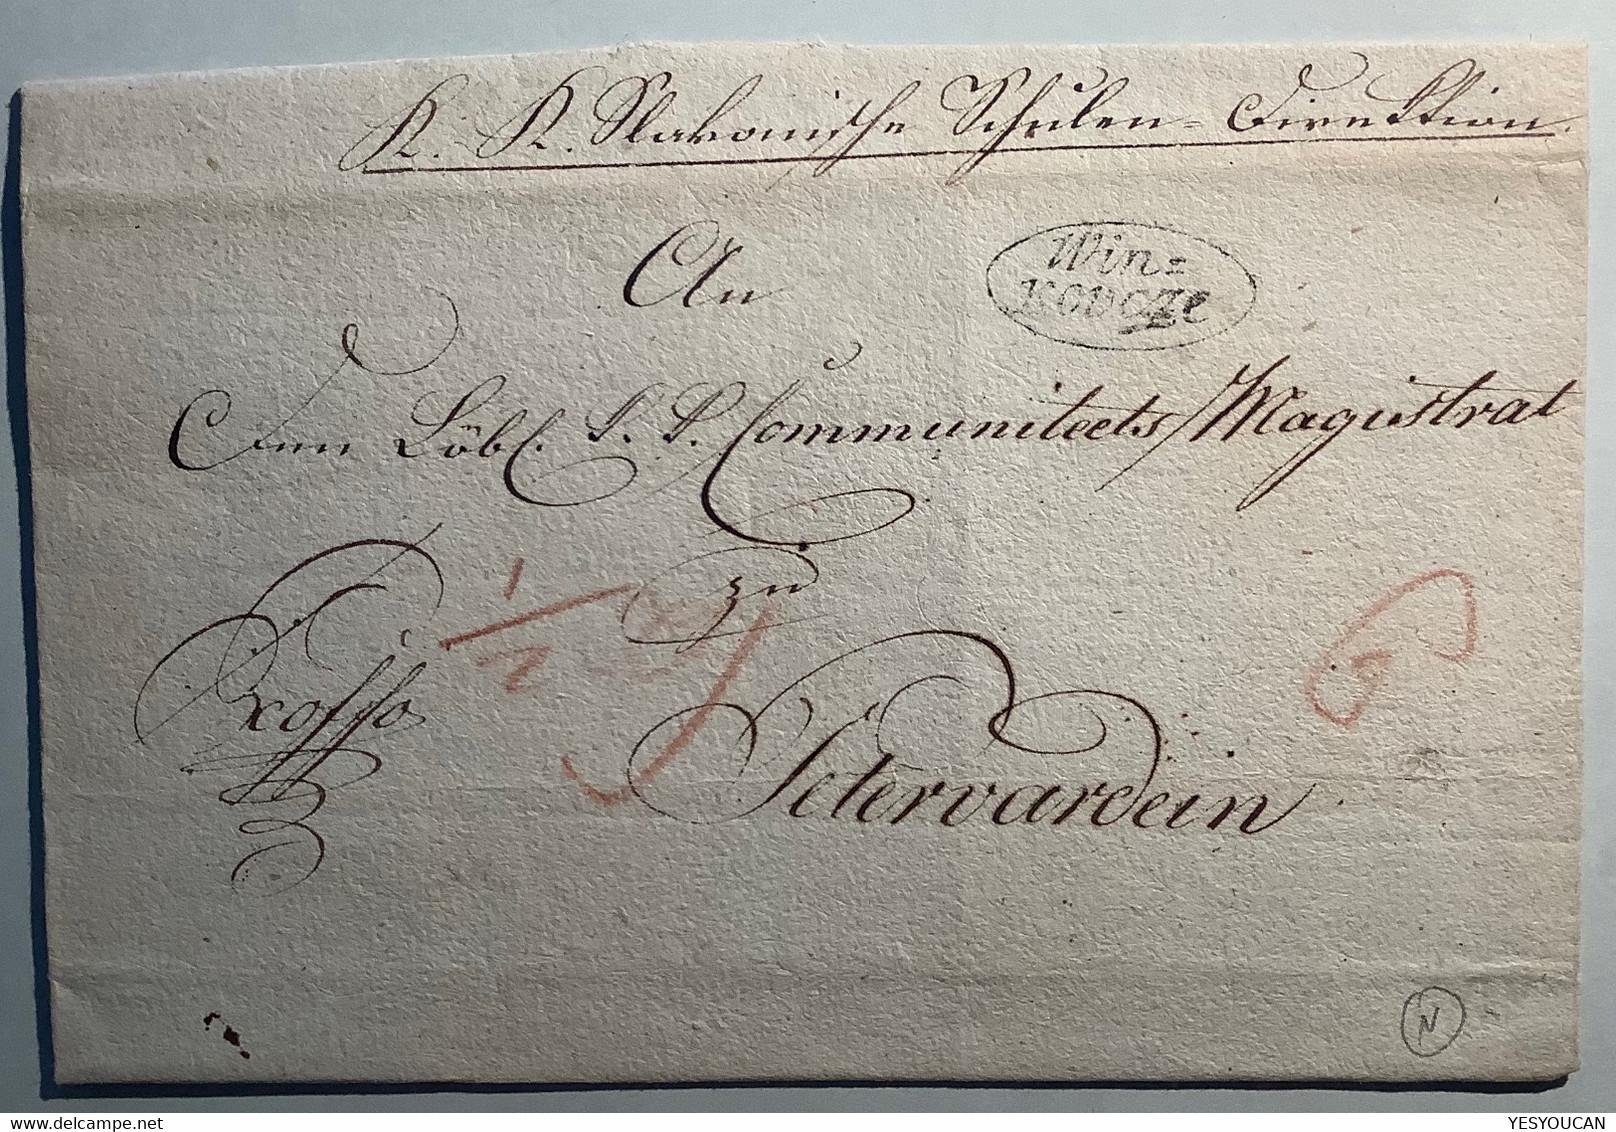 K. K. Slavonische Schulen=Direktion.
An
Win=
kovcze
Den Löbl. K. K. Communitaets Magistrat
zu
1/2
6
Ex offo
Petervardein
N
delcampe.net
YESYOUCAN